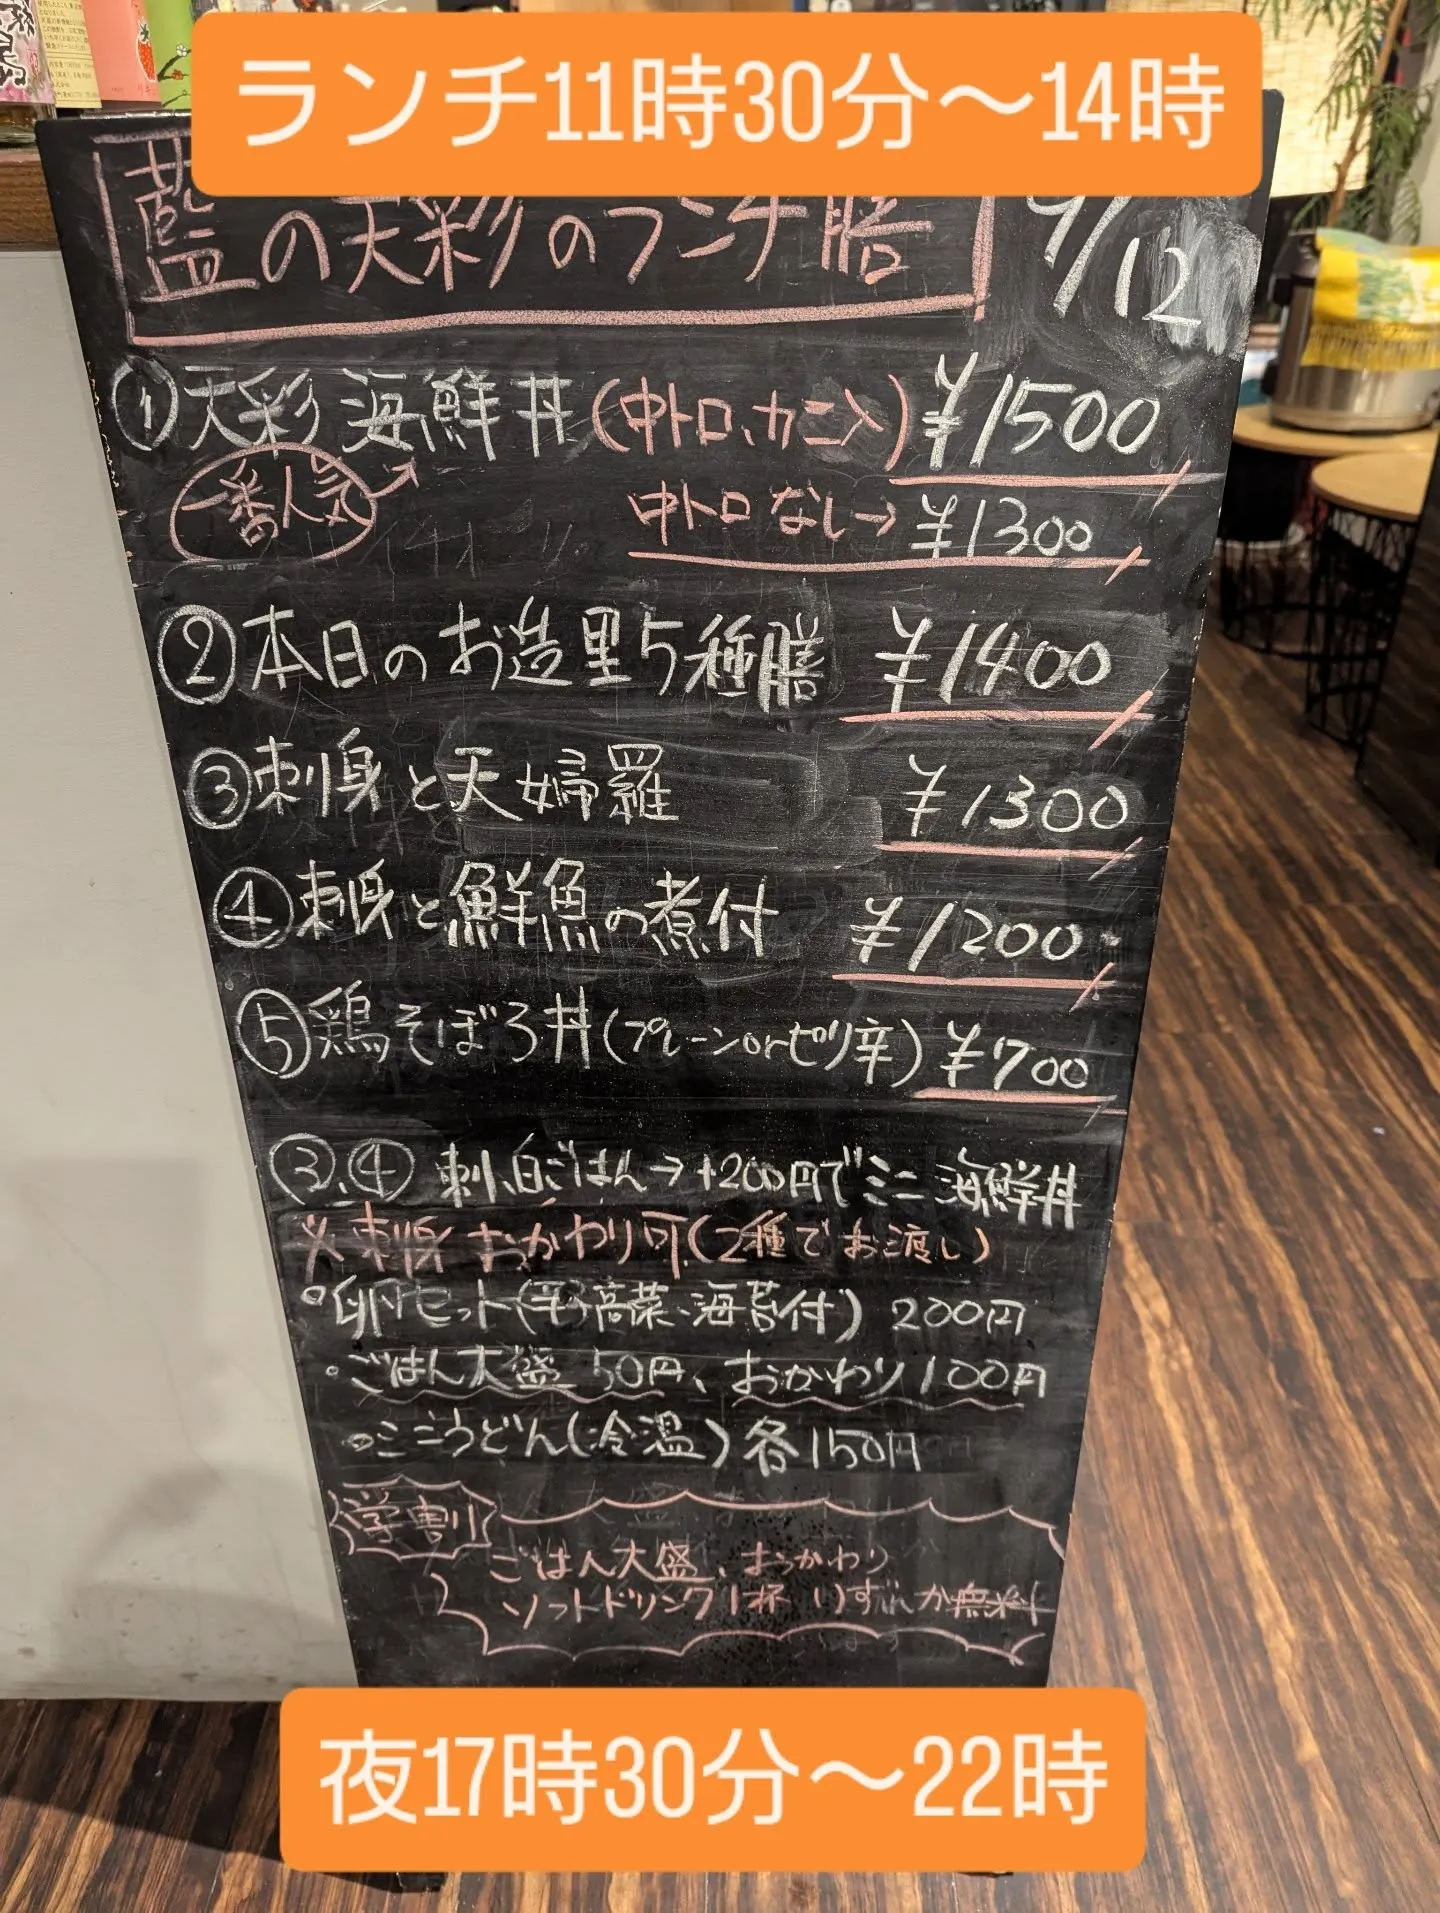 ランチ11時30分～14時
藍の天彩のランチ膳 9/12
①天彩 海鮮丼(中トロ、カニ入) ¥1500
一番人気
中トロなし→ ¥1300
②本日のお造里5種膳 ¥1400
③刺身と天婦羅 ¥1300
④刺身と鮮魚の煮付 ¥1200
⑤鶏そぼろ丼(プレーンorピリ辛) ¥700
③、④ 刺、白ごはん→+200円でミニ海鮮丼
※刺身おかわり可(2種でお渡し)
○卵セット(辛子高菜、海苔付) 200円
○ごはん大盛 50円、おかわり100円
○ミニうどん(冷温)各150円
学割
ごはん大盛、おかわり
ソフトドリンク1杯 いずれか無料
夜17時30分～22時